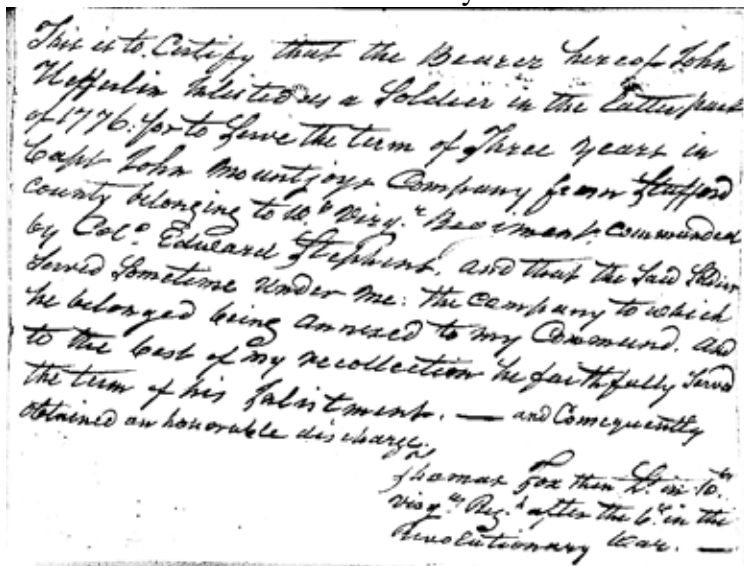 This is to Certify that the Bearer hereof John
Hefferlin Inlisted as a Soldier in the Latter part
of 1776. for to Serve the term of Three years in
Capt John Mountjoys Company from Stafford
County belonging to 10.th Virg.a Regiment commanded
by Col.o Edward Stephens, and that the said Soldier
Served Sometime under me: the Company to which
he belonged being annexed to my Command. and
to the best of my recollection he faithfully Served
the term of his Inlistment. — and Consequently
obtained an honorable discharge.
Thomas Fox then Lt. in 10.th
Virg.a Reg.t after the 6.th in the
Revolutionary War. —